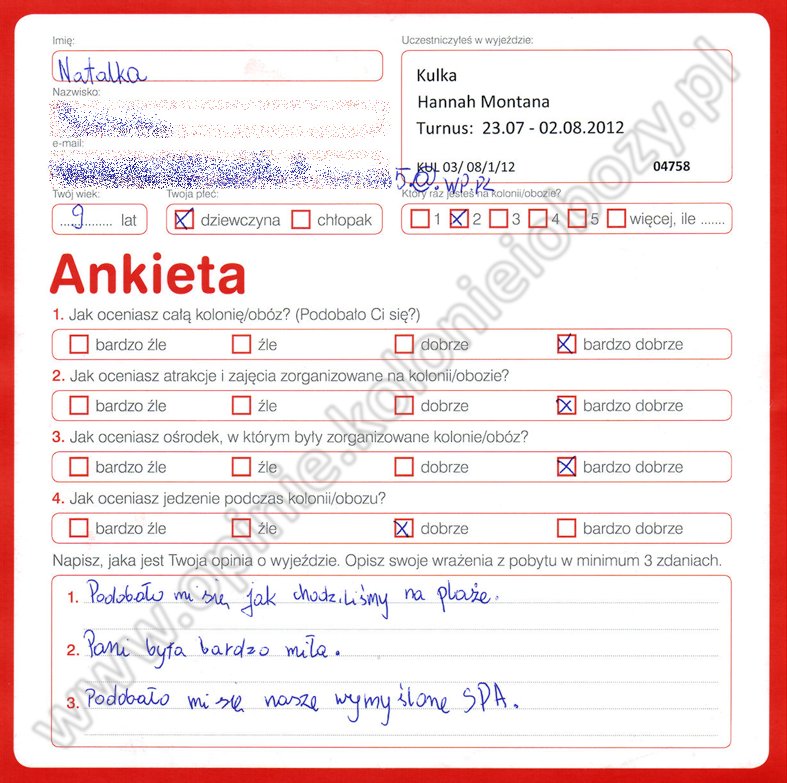 Imię:
Uczestniczyłeś w wyjeździe:
Natalka
Kulka
Hannah Montana
Turnus: 23.07 - 02.08.2012
Nazwisko:
e-mail:
KUL 03/ 08/1/12 04758
5.@.wp.pl
Twój wiek:
Twoja płeć:
Który raz jesteś na kolonii/obozie?
9 lat
dziewczyna chłopak
1 2 3 4 5 więcej, ile .......
Ankieta
1. Jak oceniasz całą kolonię/obóz? (Podobało Ci się?)
bardzo źle źle dobrze bardzo dobrze
2. Jak oceniasz atrakcje i zajęcia zorganizowane na kolonii/obozie?
bardzo źle źle dobrze bardzo dobrze
3. Jak oceniasz ośrodek, w którym były zorganizowane kolonie/obóz?
bardzo źle źle dobrze bardzo dobrze
4. Jak oceniasz jedzenie podczas kolonii/obozu?
bardzo źle źle dobrze bardzo dobrze
Napisz, jaka jest Twoja opinia o wyjeździe. Opisz swoje wrażenia z pobytu w minimum 3 zdaniach.
1. Podobało mi się jak chodziliśmy na plaże.
2. Pani była bardzo miła.
3. Podobało mi się nasze wymyślone SPA.
www.opinie.kolonieiobozy.pl